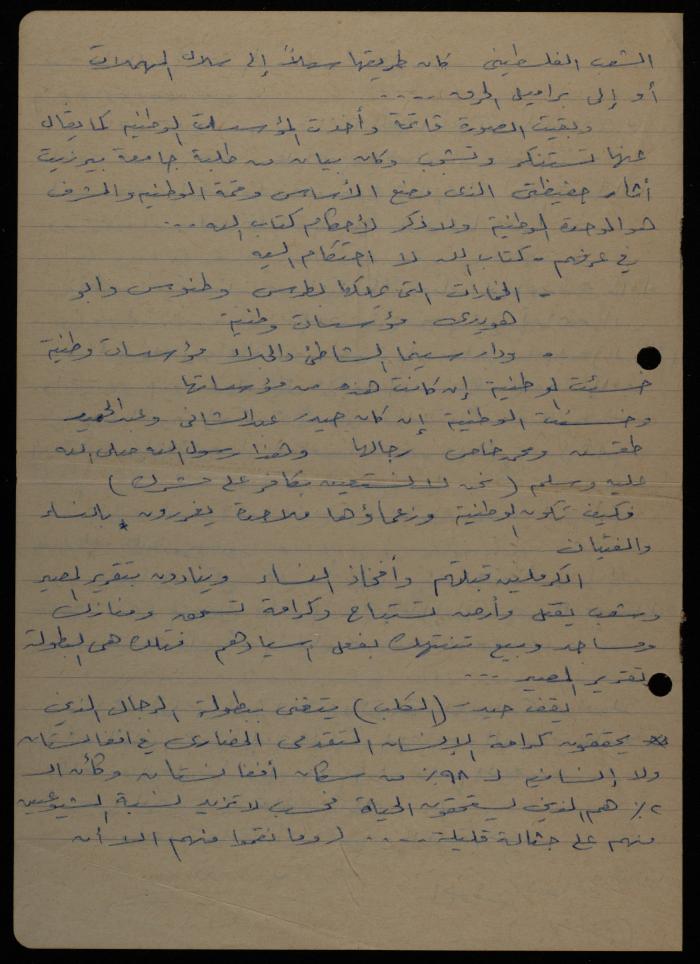 الشعب الفلسطيني كان طريقها سهلاً إلى سلال المهملات
أو إلى براميل الحرق ....
وبقيت الصورة قاتمة وأخذت المؤسسات الوطنية كما يقال
عنها تستنكر وتشجب وكان بيان من طلبة جامعة بيرزيت
أثار حفيظتي الذي وضع الأساس وقمة الوطنية والشرف
هو الوحدة الوطنية ولا ذكر لأحكام كتاب الله ...
في عرفهم - كتاب الله لا احتكام إليه
- الخمارات التي يملكها بطرس وطنوس وابو
هويدى مؤسسات وطنية
- ودار سينما الشاطئ والجلاء مؤسسات وطنية
خسئت الوطنية إن كانت هذه من مؤسساتها
وخسئت الوطنية إن كان حيدر عبدالشافي وعبدالحميد
طقش ومحمد خاص رجالها وهذا رسول الله صلى الله
عليه وسلم (نحن لا نستعين بكافر على مشرك)
فكيف تكون الوطنية وزعماؤها ملاحدة يغررون بالنساء
والفتيان
الكرملين قبلتهم وأفخاذ النساء وينادون بتقرير المصير
وشعب يقتل وأرض تستباح وكرامة تسحق ومنازل
ومساجد وبيع تنتهك بفعل اسيادهم فتلك هي البطولة
وتقرير المصير ...
يقف حيدر (الكلب) يتغنى ببطولة الرجال الذين
يحققون كرامة الإنسان التقدمي الحضاري في افغانستان
ولا إنسانية لـ ٩٨٪ من سكان أفغانستان وكأن الـ
٢٪ هم الذين يستحقون الحياة فحسب لا تزيد نسبة الشيوعيين
منهم على حثالة قليلة .... (وما نقموا منهم إلا أن